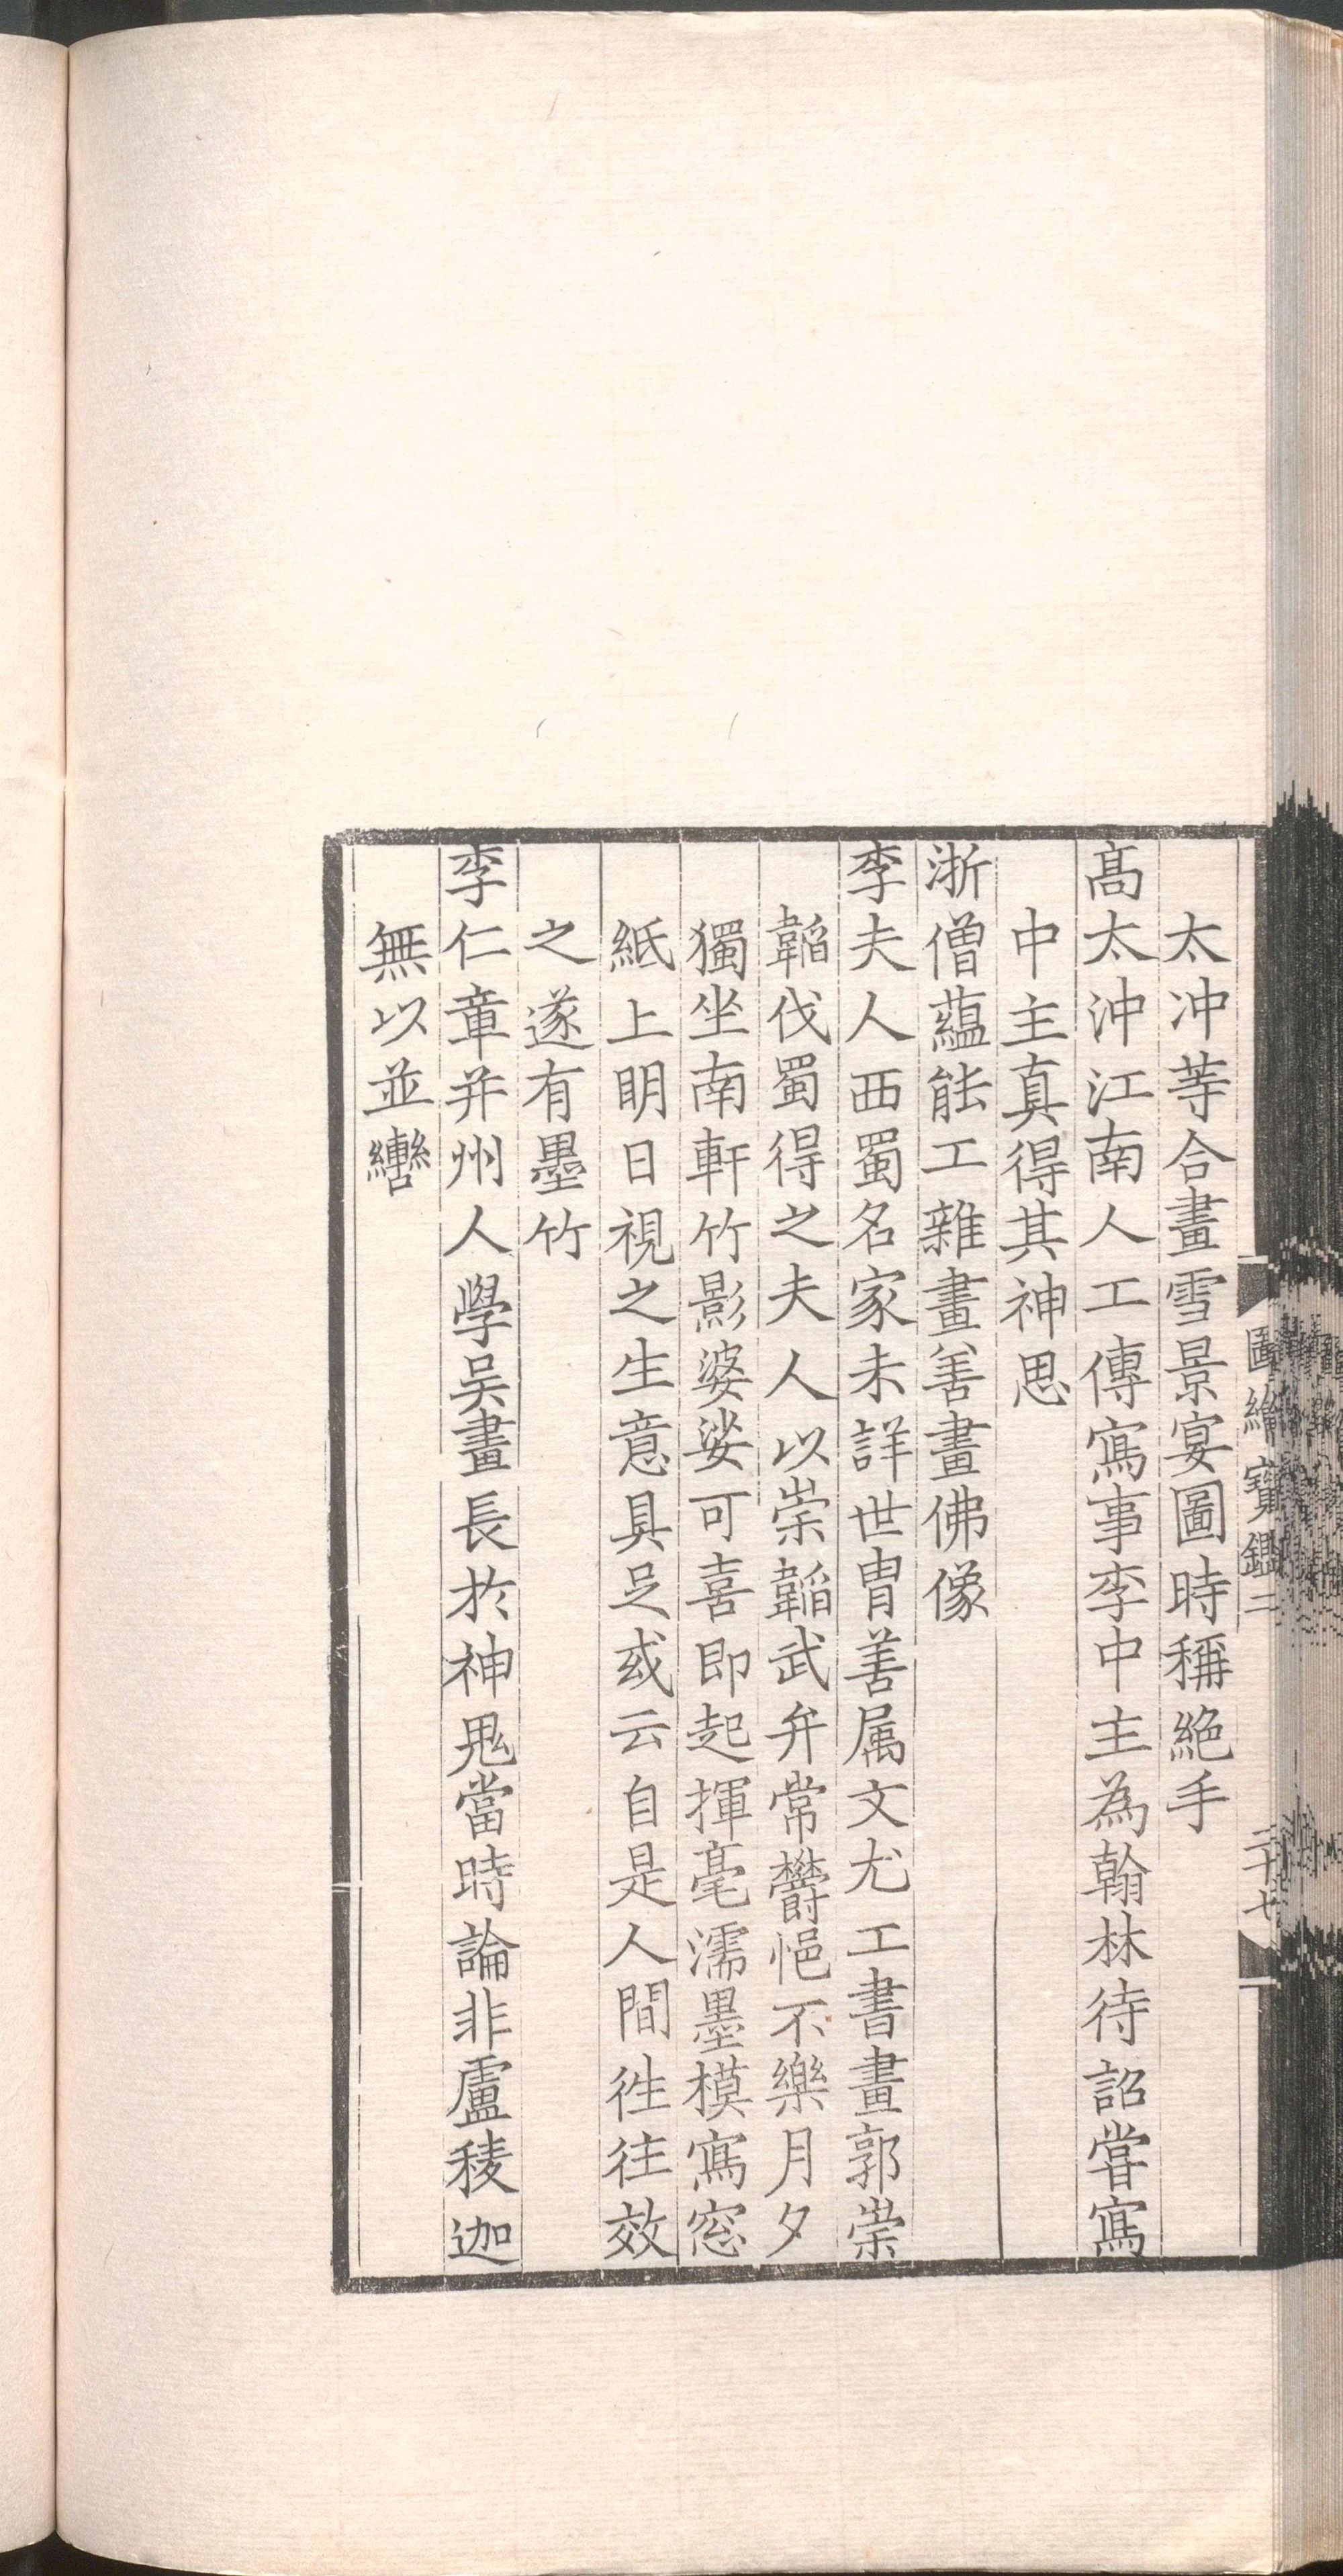 太冲等合畫雪景宴圖時稱絶手
髙太沖江南人工傳寫事李中主為翰林待詔嘗寫
中主真得其神思
浙僧蘊能工雜畫善畫佛像
李夫人西蜀名家未詳世胄善属文尤工書畫郭崇
韜伐蜀得之夫人以崇韜武弁常欝悒不樂月夕
獨坐南軒竹影婆娑可喜即起揮毫濡墨模寫窓
紙上明日視之生意具足或云自是人間徃往效
之遂有墨竹
李仁章并州人學吴畫長於神鬼當時論非盧稜迦
無以並轡
圖繪寶鑑二
二十七